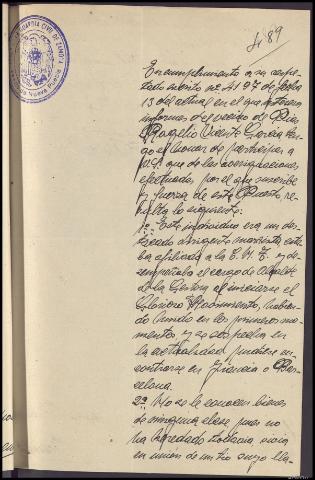 GUARDIA CIVIL DE ZAMORA
Nueva Puebla
489
En cumplimiento a su respe-
tado escrito nº 4197 de fecha
13 del actual en el que interesa
informes del vecino de
Rogelio Vicente García ten-
go el honor de participar a
V.S. que de las averiguaciones
efectuadas por el que suscribe
y fuerza de este Puesto, re-
sulta lo siguiente:
1º.- Este individuo era un des-
tacado dirigente marxista, esta-
ba afiliado a la y de-
sempeñaba el cargo de Alcalde
de la Gestora al iniciarse el
Glorioso Movimiento, habien-
do huido en los primeros mo-
mentos y se sospecha en
la actualidad pudiera en-
contrarse en Francia o Bar-
celona.
2º. No se le conocen bienes
de ninguna clase pues no
ha heredado todavía, vivía
en union de un tio suyo lla-